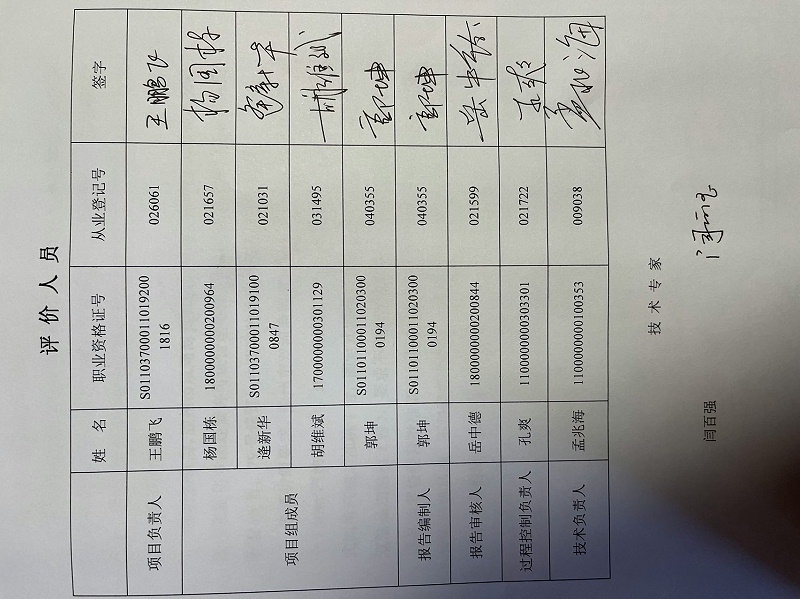 评价人员
姓 名 职业资格证号 从业登记号 签字
项目负责人 王鹏飞 S011037000110192001816 026061 王鹏飞
项目组成员 杨国栋 1800000000200964 021657 杨国栋
逄新华 S011037000110191000847 021031
胡维斌 1700000000301129 031495 胡维斌
郭坤 S011011000110203000194 040355 郭坤
报告编制人 郭坤 S011011000110203000194 040355 郭坤
报告审核人 岳中德 1800000000200844 021599 岳中德
过程控制负责人 孔爽 1100000000303301 021722 孔爽
技术负责人 孟兆海 1100000000100353 009038 孟兆海
技 术 专 家
闫百强